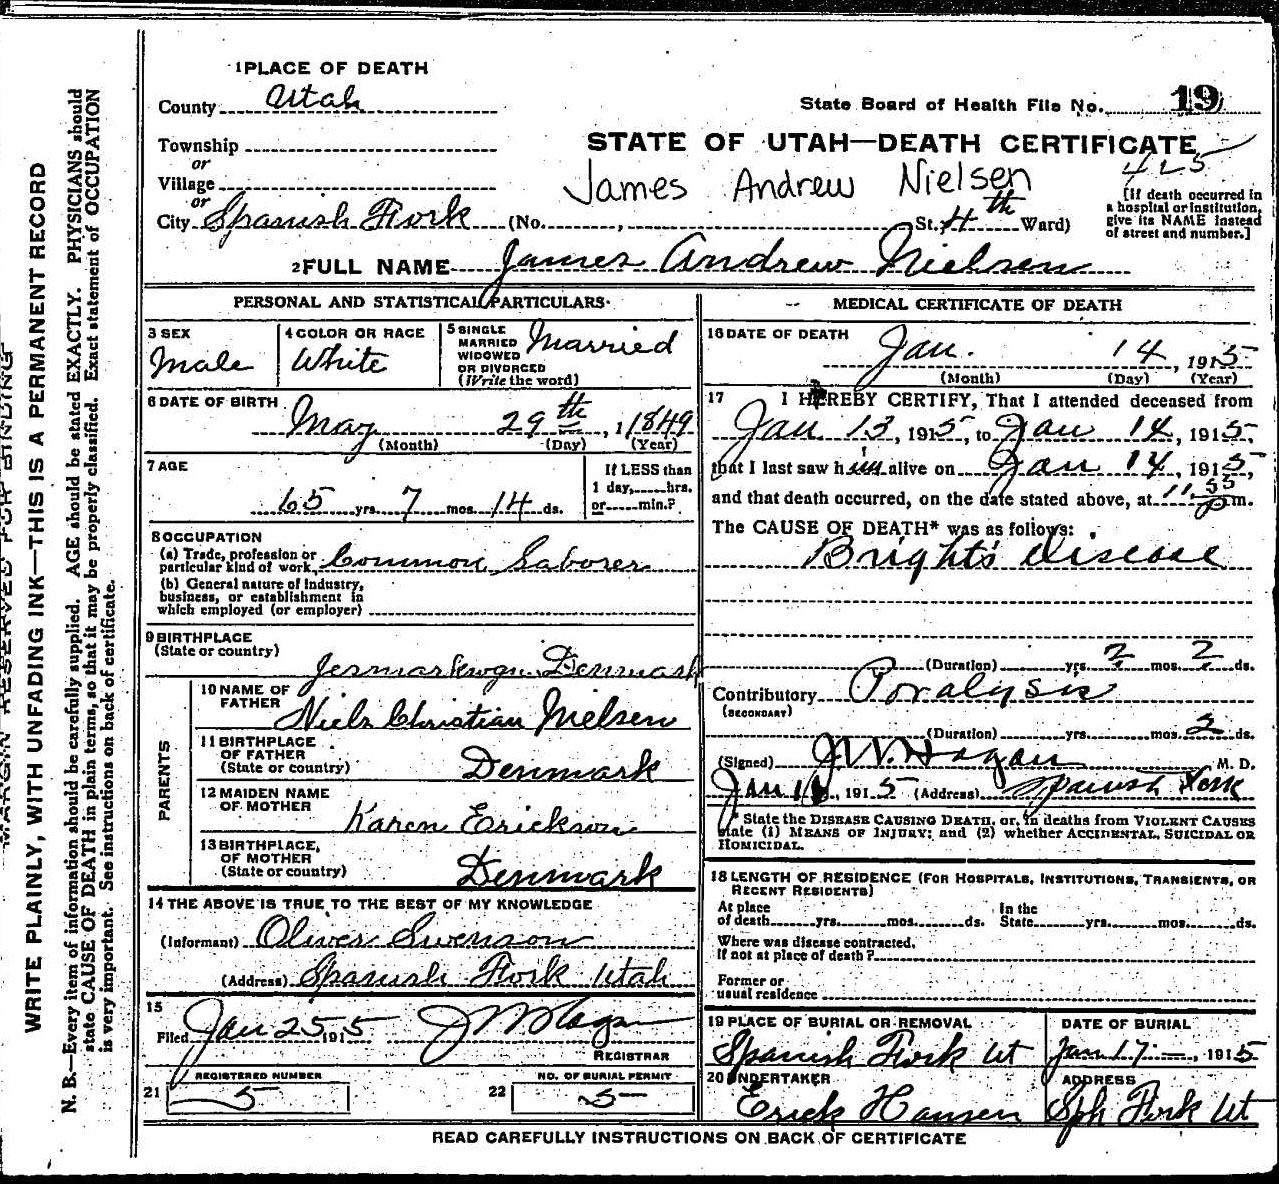 1 PLACE OF DEATH
County Utah
State Board of Health File No. 19
Township
or
Village
or
STATE OF UTAH—DEATH CERTIFICATE
425
James Andrew Nielsen
City Spanish Fork (No. , St. 4th Ward)
[If death occurred in
a hospital or institution,
give its NAME instead
of street and number.]
2 FULL NAME James Andrew Nielsen
PERSONAL AND STATISTICAL PARTICULARS
3 SEX
Male
4 COLOR OR RACE
White
5 SINGLE
MARRIED
WIDOWED
OR DIVORCED
(Write the word)
Married
6 DATE OF BIRTH
May 29th, 1849
(Month) (Day) (Year)
7 AGE
65 yrs. 7 mos. 14 ds.
If LESS than
1 day, hrs.
or min.?
8 OCCUPATION
(a) Trade, profession or
particular kind of work Common Laborer
(b) General nature of industry,
business, or establishment in
which employed (or employer)
9 BIRTHPLACE
(State or country)
Denmark
PARENTS
10 NAME OF
FATHER
Niels Christian Nielsen
11 BIRTHPLACE
OF FATHER
(State or country)
Denmark
12 MAIDEN NAME
OF MOTHER
Karen Erickson
13 BIRTHPLACE,
OF MOTHER
(State or country)
Denmark
14 THE ABOVE IS TRUE TO THE BEST OF MY KNOWLEDGE
(Informant) Oliver Swenson
(Address) Spanish Fork Utah
15
Filed Jan 25 1915 J W Hagan
REGISTRAR
REGISTERED NUMBER
21 5
NO. OF BURIAL PERMIT
22 5
MEDICAL CERTIFICATE OF DEATH
16 DATE OF DEATH
Jan. 14, 1915
(Month) (Day) (Year)
17 I HEREBY CERTIFY, That I attended deceased from
Jan 13, 1915, to Jan 14, 1915,
that I last saw him alive on Jan 14, 1915,
and that death occurred, on the date stated above, at 11:55 p m.
The CAUSE OF DEATH* was as follows:
Bright's disease
(Duration) yrs. ? mos. ? ds.
Contributory Paralysis
(SECONDARY)
(Duration) yrs. mos. 2 ds.
(Signed) J. W. Hagan M. D.
Jan 16, 1915 (Address) Spanish Fork
*State the DISEASE CAUSING DEATH, or, in deaths from VIOLENT CAUSES
state (1) MEANS OF INJURY; and (2) whether ACCIDENTAL, SUICIDAL OR
HOMICIDAL.
18 LENGTH OF RESIDENCE (FOR HOSPITALS, INSTITUTIONS, TRANSIENTS, OR
RECENT RESIDENTS)
At place
of death yrs. mos. ds.
In the
State yrs. mos. ds.
Where was disease contracted,
If not at place of death?
Former or
usual residence
19 PLACE OF BURIAL OR REMOVAL
Spanish Fork Ut
DATE OF BURIAL
Jan 17, 1915
20 UNDERTAKER
Erick Hansen
ADDRESS
Sph Fork Ut
READ CAREFULLY INSTRUCTIONS ON BACK OF CERTIFICATE
MARGIN RESERVED FOR BINDING
WRITE PLAINLY, WITH UNFADING INK—THIS IS A PERMANENT RECORD
N. B.—Every item of information should be carefully supplied. AGE should be stated EXACTLY. PHYSICIANS should
state CAUSE OF DEATH in plain terms, so that it may be properly classified. Exact statement of OCCUPATION
is very important. See instructions on back of certificate.